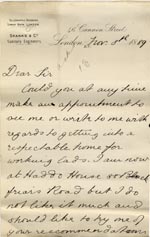 SPARKS & Co
Cannon Street
London, Nov. 5th 1889
Dear Sir
Could you at any time
make an appointment to
see me or write to me with
regards to getting into a
respectable home for
working lads. I am now
at Haddo House Black
friars Road but I do
not like it much and
should like to try one of
your recommendations